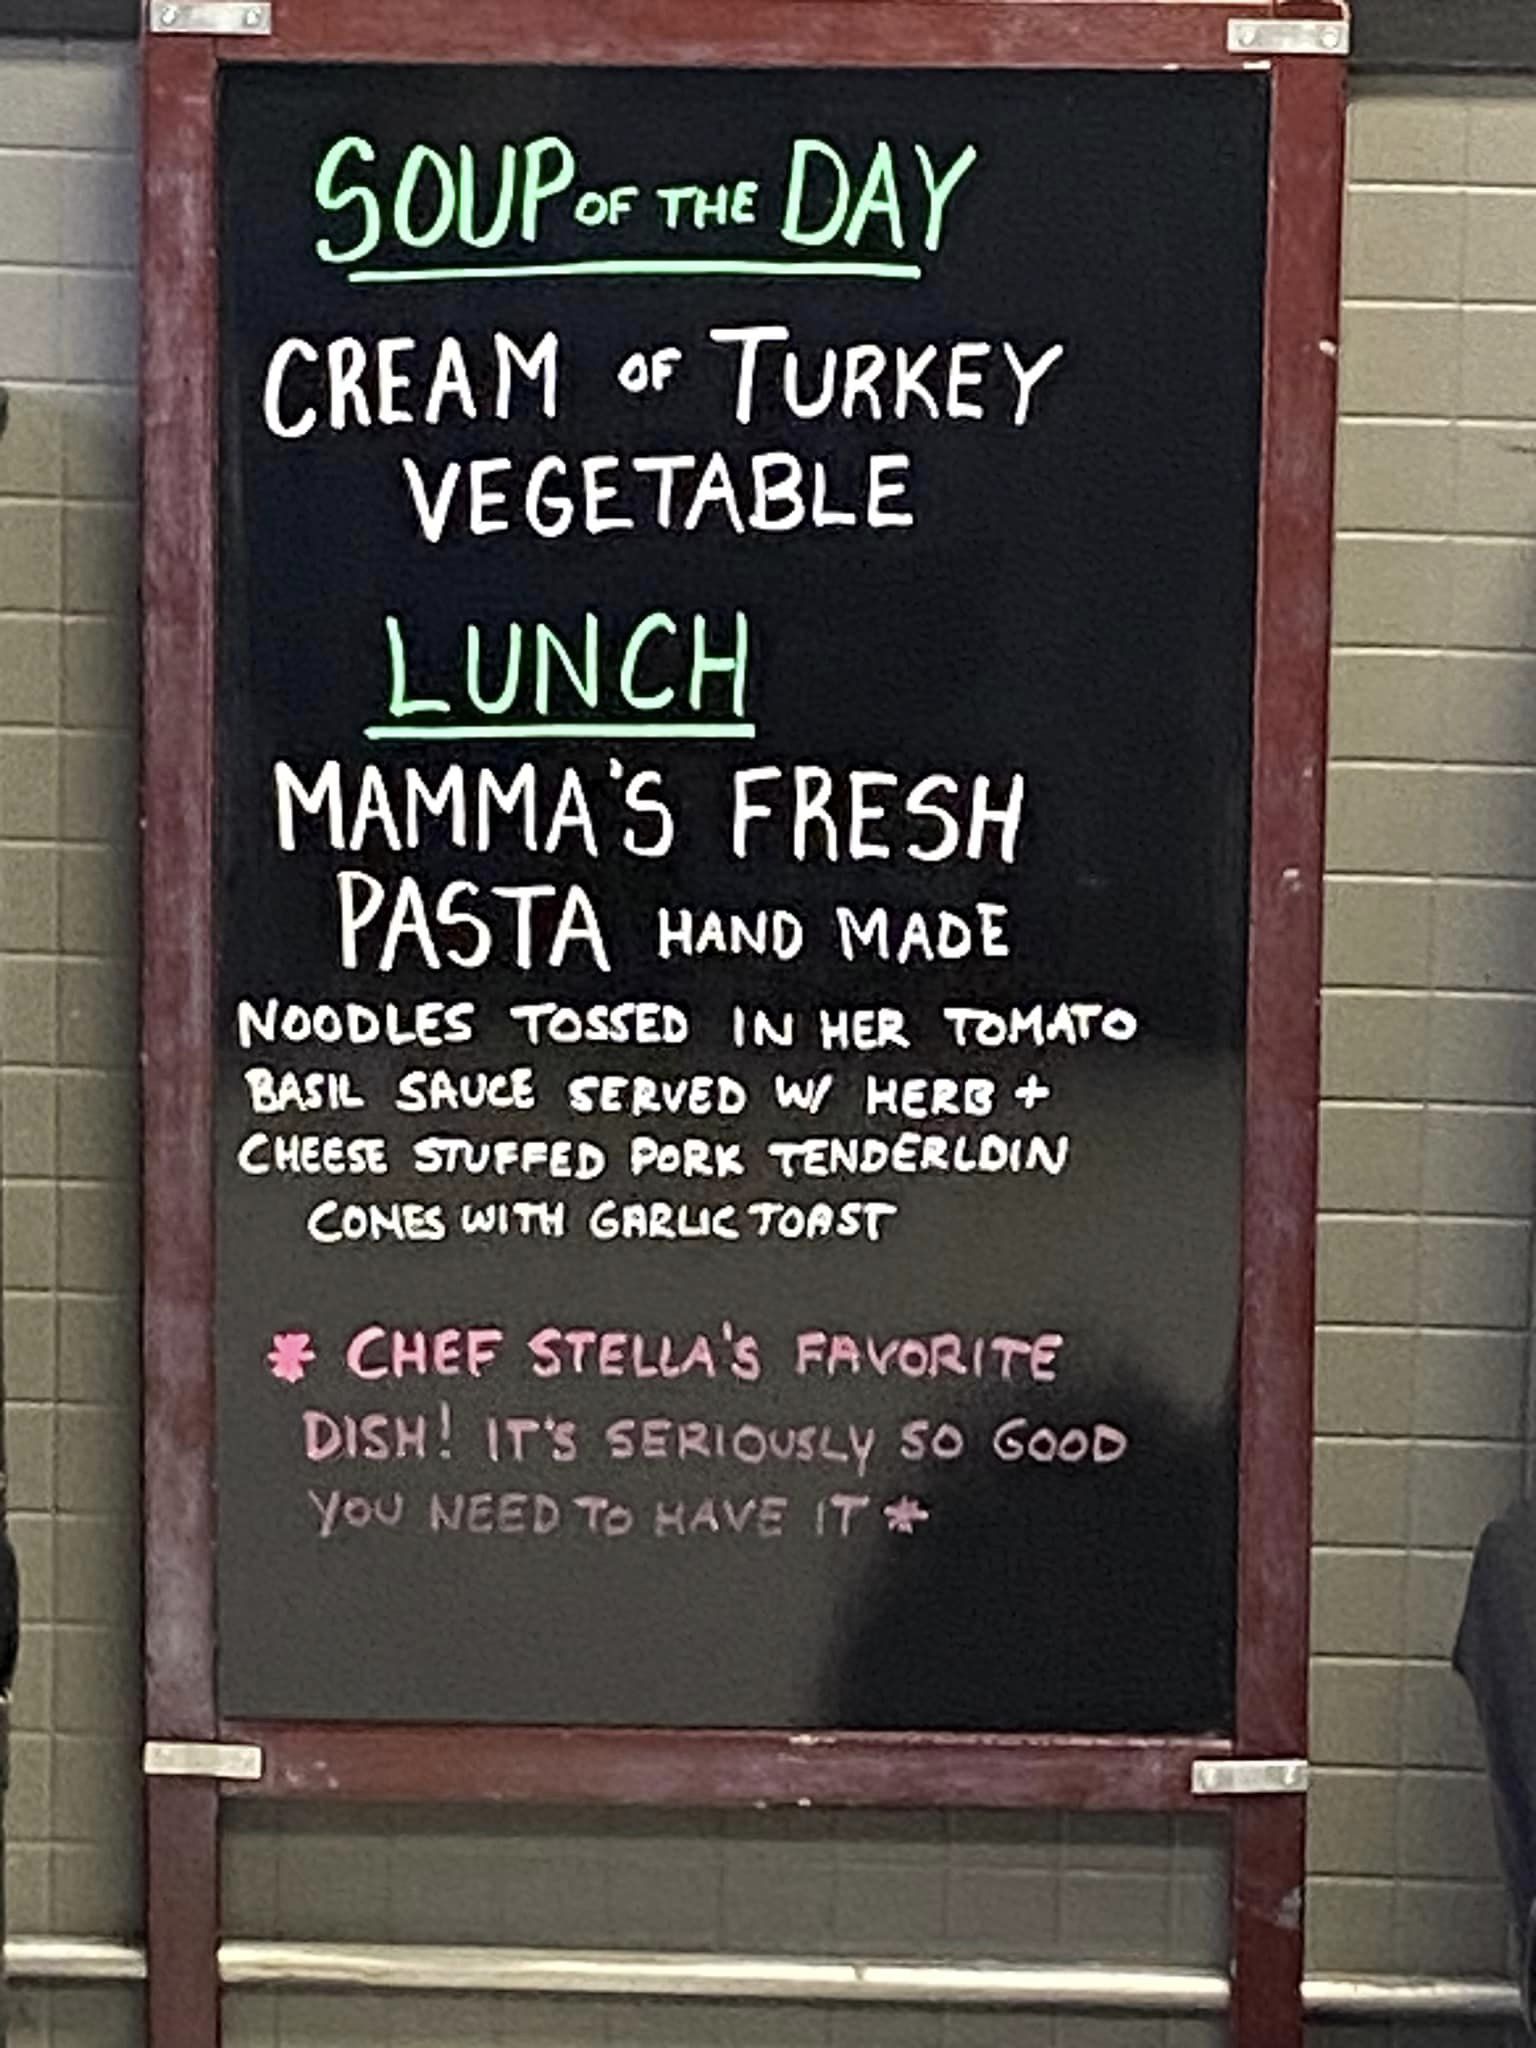 SOUP OF THE DAY
CREAM OF TURKEY
VEGETABLE
LUNCH
MAMMA'S FRESH
PASTA HAND MADE
NOODLES TOSSED IN HER TOMATO
BASIL SAUCE SERVED W/ HERB +
CHEESE STUFFED PORK TENDERLOIN
COMES WITH GARLIC TOAST
* CHEF STELLA'S FAVORITE
DISH! IT'S SERIOUSLY SO GOOD
YOU NEED TO HAVE IT *